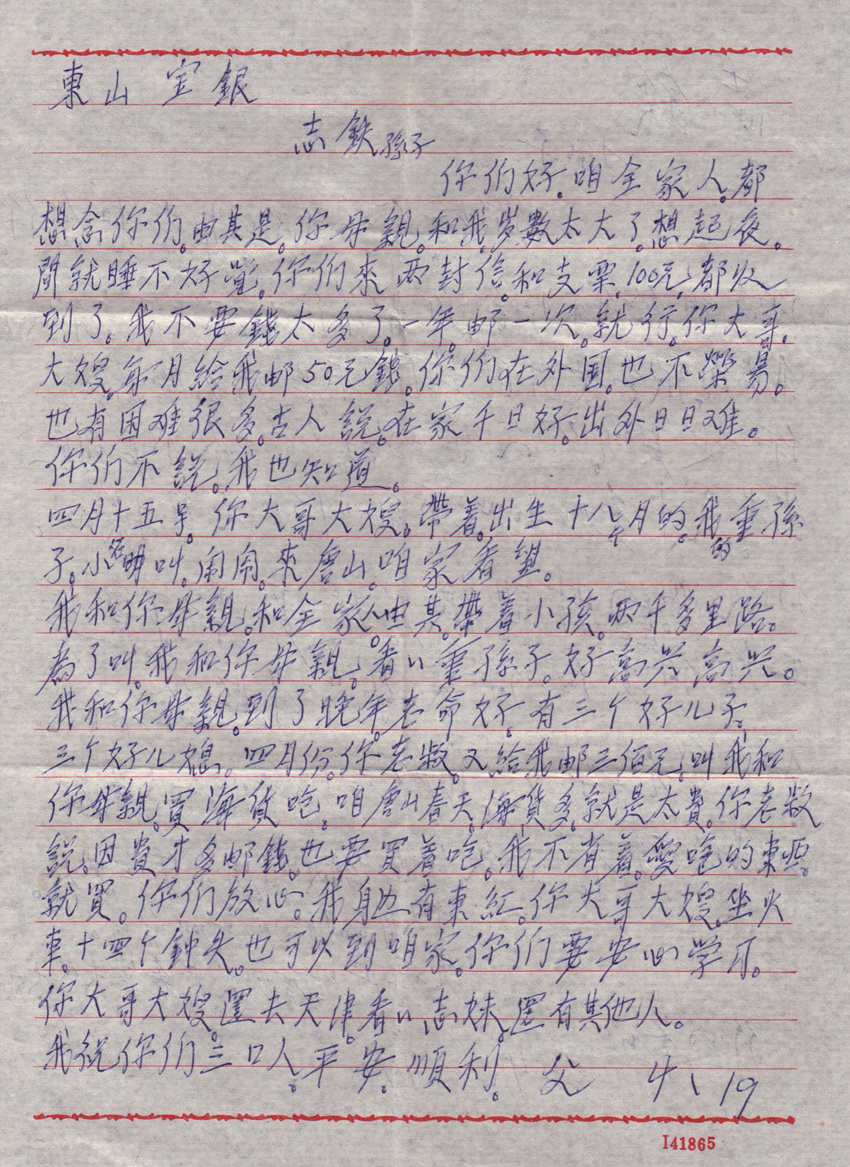 東山 宝銀
志鉄孫子
你们好。咱全家人。都
想念你们。由其是。你母親。和我。岁數太大了。想起夜。
間就睡不好覚。你们來两封信。和支票。100元。都收
到了。我不要錢太多了。一年。邮一次。就行。你大哥。
大嫂。每月給我邮50元錢。你们在外国。也不榮易。
也有困难很多。古人説。在家千日好。出外日日难。
你们不説。我也知道。
四月十五号。你大哥大嫂。帶着。出生十八个月的。我的重孫
子。小名明叫。闹闹。來唐山。咱家看望。
我和你母親。和全家人。由其。帶着小孩。两千多里路。
為了叫。我和你母親。看八重孫子。好高兴高兴。
我和你母親。到了晚年。老命好。有三个好儿子。
三个好儿媳。四月份。你老叔。又給我邮三佰元。叫我和
你母親。買海貨吃。咱唐山春天。海貨多。就是太貴。你老叔
説。因貴才多邮錢。也要買着吃。我不省着。愛吃的東西。
就買。你们放心。我身边有東紅。你大哥大嫂。坐火
車。十四个钟头。也可以到咱家。你们要安心学习。
你大哥大嫂。還去天津。看八志妹。還有其他人。
我祝你们三口人。平安。順利。 父 4、19
I41865